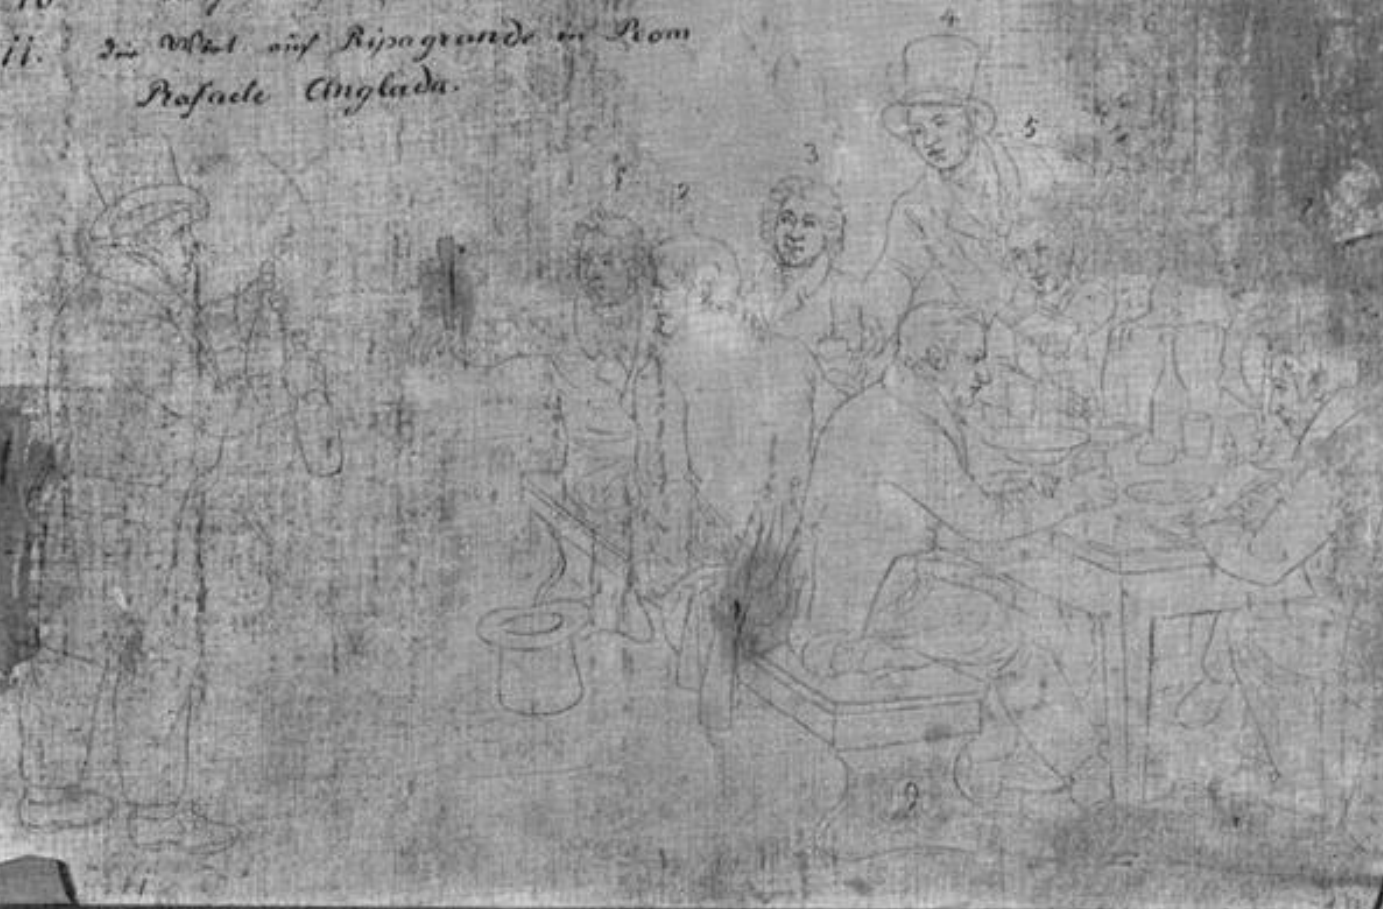 10.
11. Der Wirt auf Ripagrande in Rom
Rafaele Anglada.
4
6
5
3
1
2
7
9
11